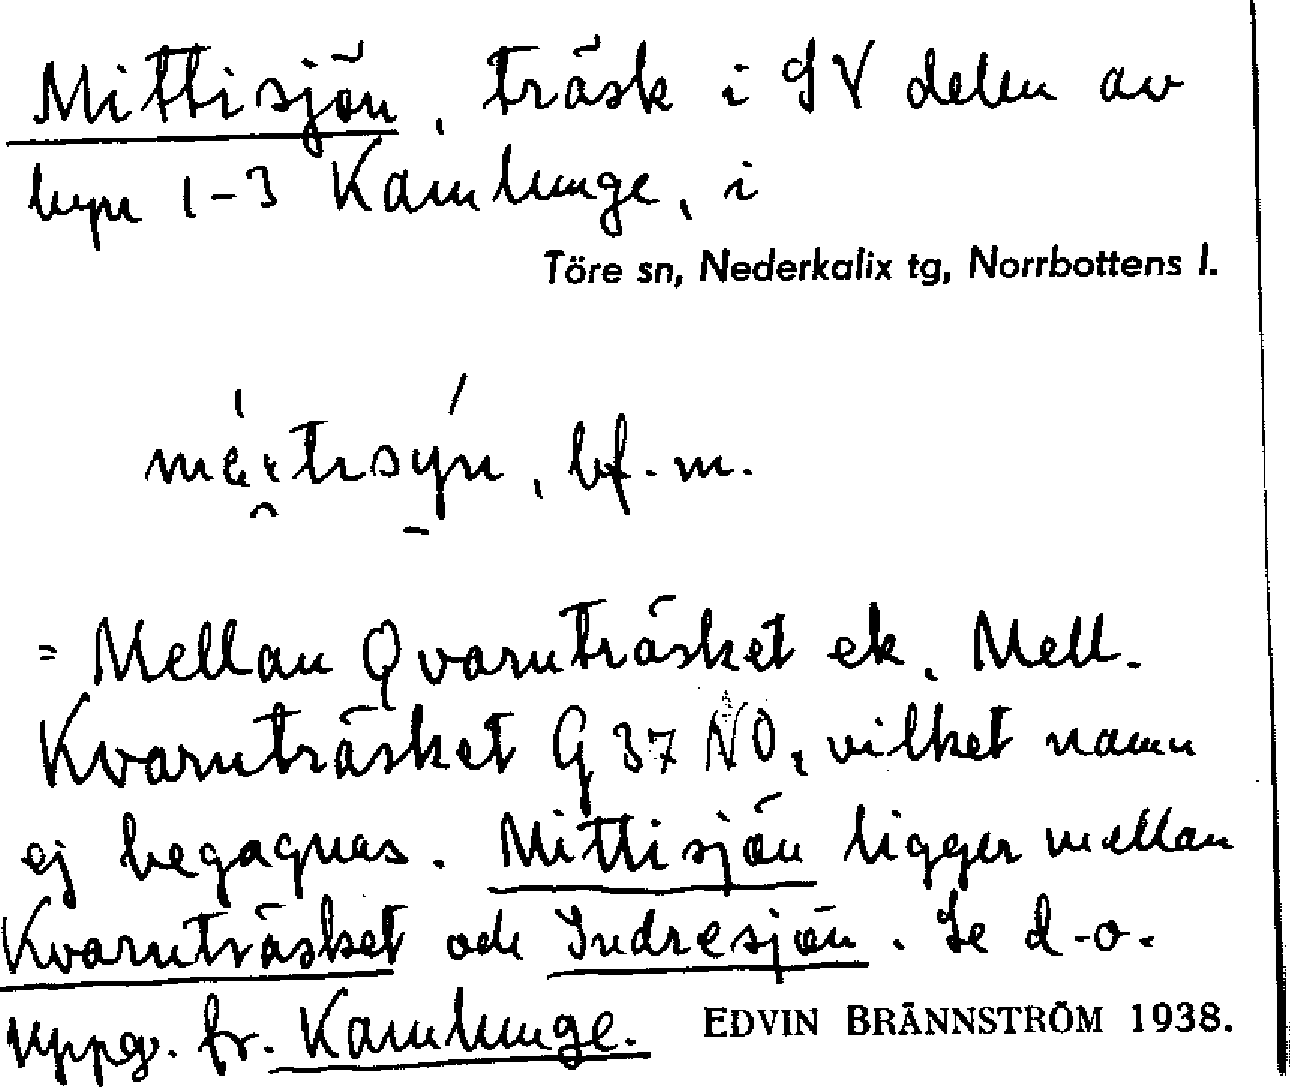 Mittisjön, träsk i SV delen av
byn 1-3 Kamlunge, i
Töre sn, Nederkalix tg, Norrbottens l.
bf. m.
= Mellan Qvarnträsket ek. Mell.
Kvarnträsket G 37 NO, vilket namn
ej begagnas. Mittisjön ligger mellan
Kvarnträsket och Indresjön. Se d-o.
uppg. fr. Kamlunge.
EDVIN BRÄNNSTRÖM 1938.